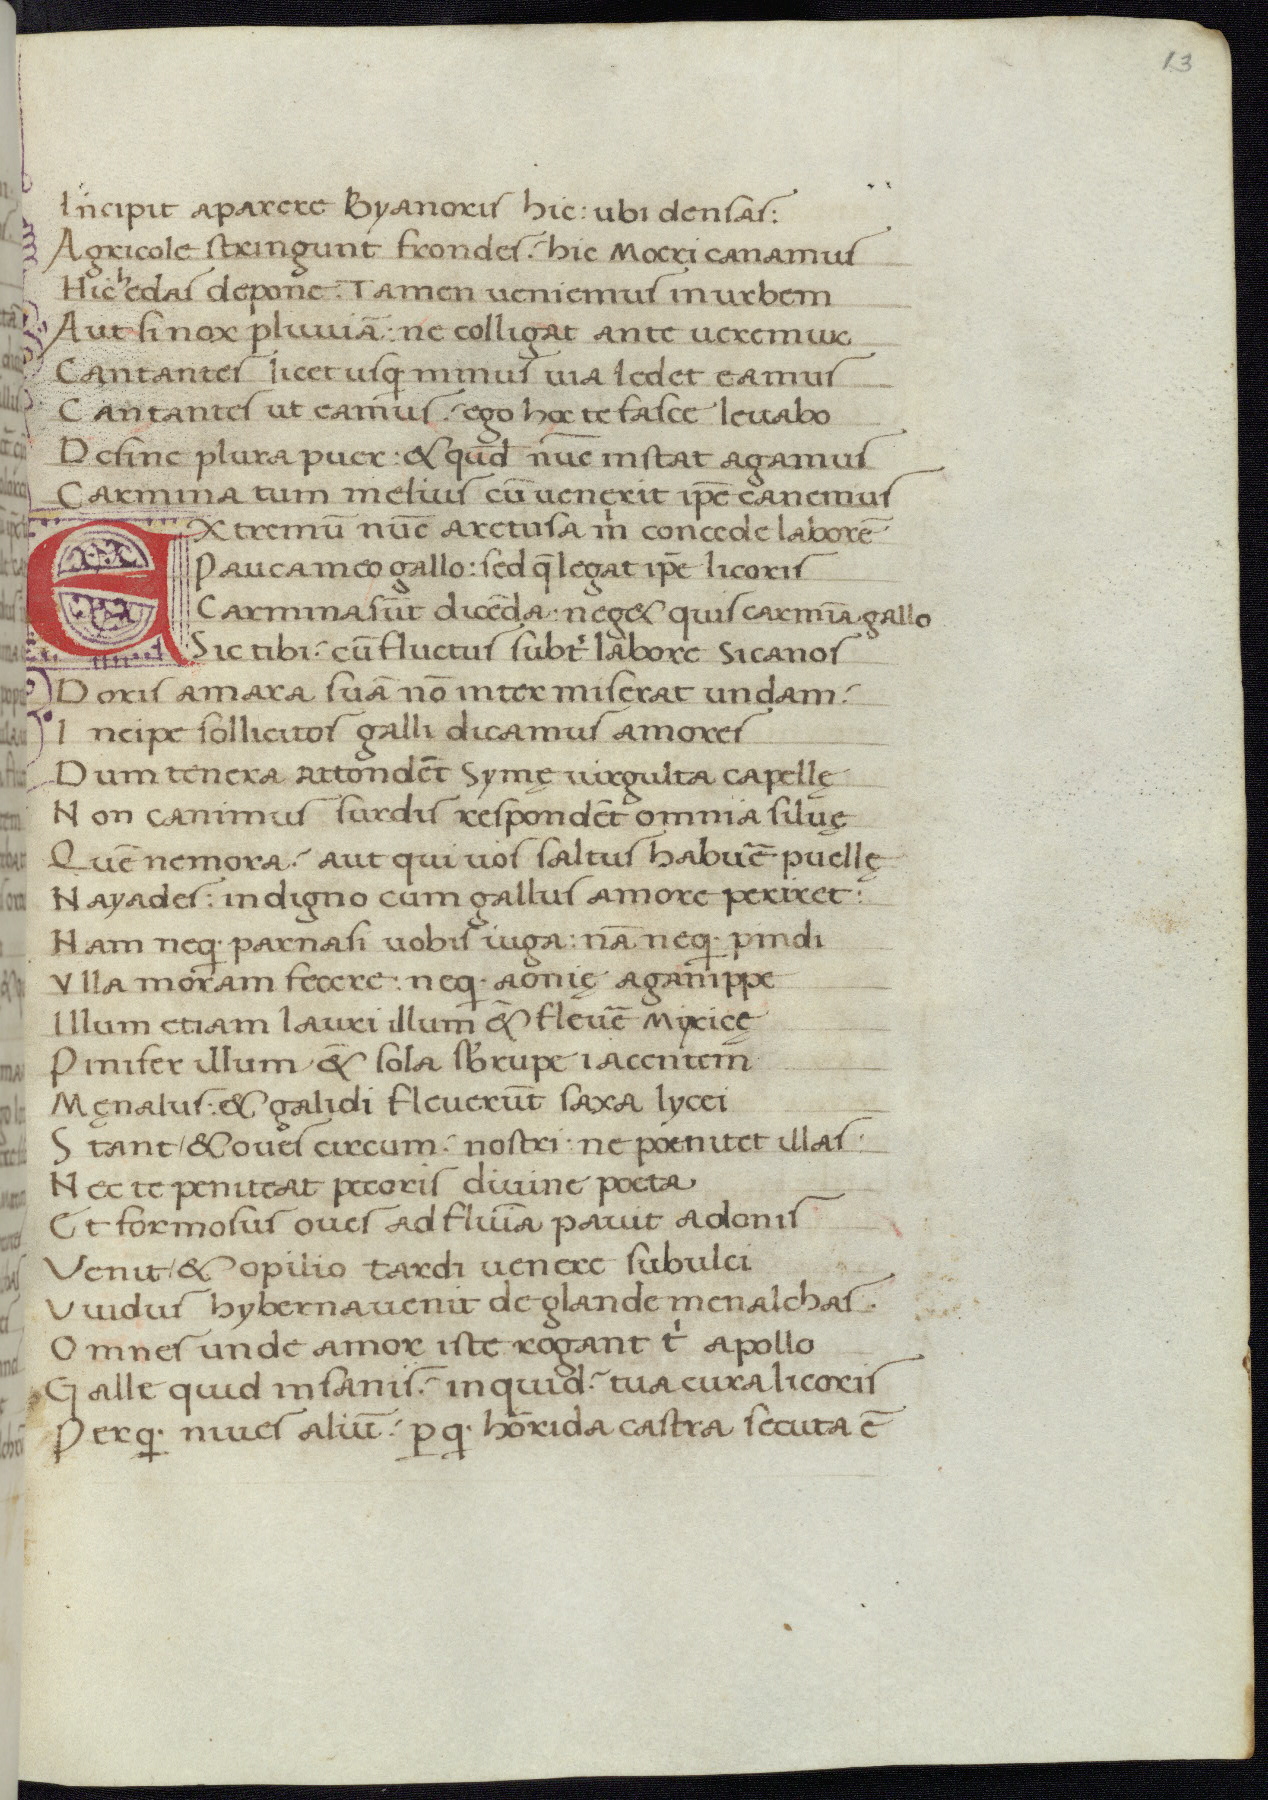 13
Incipit aparere Byanoris hic: ubi densas:
Agricole stringunt frondes. hic Moeri canamus
Hic hedas depone. Tamen ueniemus in urbem
Aut si nox pluuiā: ne colligat ante ueremur
Cantantes licet usq; minus uia ledet eamus
Cantantes ut eamus. ego hoc te fasce leuabo
Desine plura puer: & qud̄ nūc instat agamus
Carmina tum melius cū uenerit ip̄e canemus
Extremū nūc aretusa m̍ concede laborē
Pauca meo gallo: sed q̄ legat ip̄e licoris
Carmina sūt dicēda: neg& quis carmīa gallo
Sic tibi. cū fluctus subt̍ labore sicanos
Doris amara suā nō inter miserat undam.
Incipe sollicitos galli dicamus amores
Dum tenera attondēt Symę uirgulta capellę
Non canimus surdis respondēt omnia siluę
Quę nemora. aut qui uos saltus habuēre puellę
Nayades: indigno cum gallus amore periret:
Nam neq; parnasi uobis iuga: nā neq; pindi
Vlla moram fecere. neq; aonię aganippe
Illum etiam lauri illum &̄ fleuēre Miricę
Pinifer illum &̄ sola sb̄ rupe iacentem
Męnalus: & galidi fleuerūt saxa lycei
Stant / & oues circum. nostri. ne poenitet illas.
Nec te peniteat pecoris diuine poeta
Et formosus oues ad fluīa pauit adonis
Venit / & opilio tardi uenere subulci
Vuidus hyberna uenit de glande menalchas.
Omnes unde amor iste rogant t̍ apollo
Galle quid insanis. inquid. tua cura licoris
Perq; niues aliū. ꝑq; horrida castra secuta ē